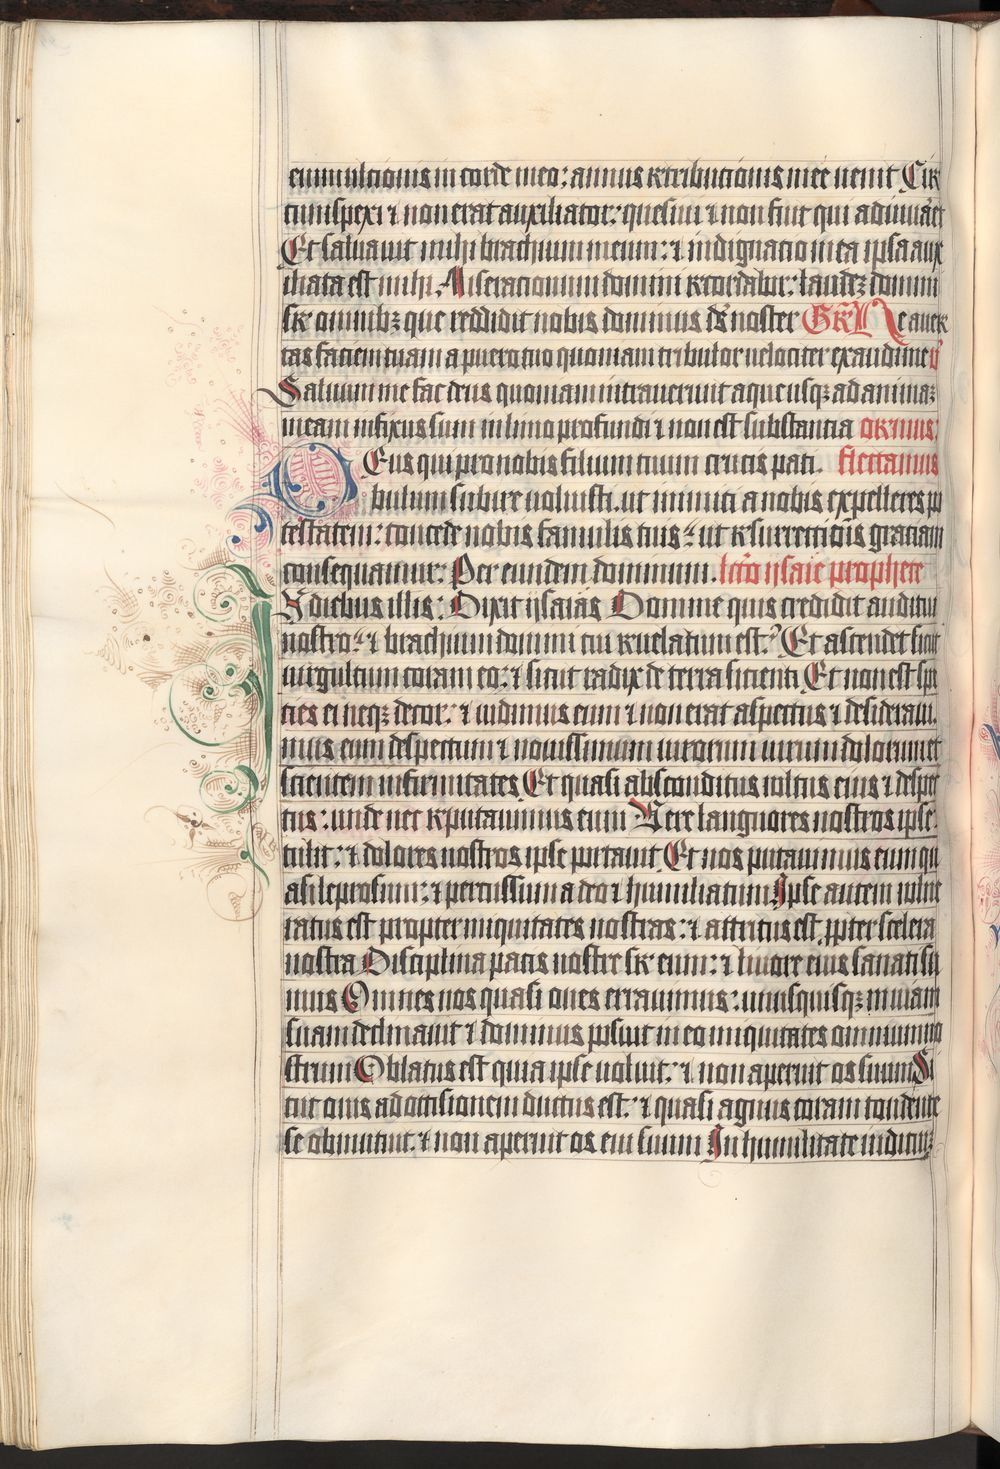 enim ulcionis in corde meo: annus retributionis mee uenit Cir
cumspexi ⁊ non erat auxiliator: quesiui ⁊ non fuit qui adiuuaret
Et saluauit mihi brachium meum: ⁊ indignatio mea ipsa aux
iliata est mihi. Miserationum domini recordabor: laudez domini
sr omnibꝫ que reddidit nobis dominus ds noster Grl Ne auer
tas faciem tuam a puero tuo quoniam tribulor uelociter exaudi me v
Saluum me fac deus quoniam intrauerunt aque usqꝫ ad animaꝫ
meam infixus sum in limo profundi ⁊ non est substantia oremus:
Deus qui pro nobis filium tuum crucis pati. flectamus
bulum subire uoluisti. ut inimici a nobis expelleres po
testatem: concede nobis famulis tuis: ut resurrectiois gratiam
consequamur: Per eundem dominum. lcto ysaie prophete
In diebus illis: Dixit ysaias Domine quis credidit auditui
nostro: ⁊ brachium domini cui reuelatum est? Et ascendet sicut
uirgultum coram eo: ⁊ sicut radix de terra sicienti Et non est spe
cies ei neqꝫ decor: ⁊ uidimus eum ⁊ non erat aspectus ⁊ desideraui.
mus eum despectum ⁊ nouissimum uirorum uirum dolorum et
scientem infirmitates Et quasi absconditus uoltus eius ⁊ despec
tus: unde nec reputauimus eum Uere languores nostros ipse
tulit: ⁊ dolores nostros ipse portauit Et nos putauimus eum qu
asi leprosum: ⁊ percussum a deo ⁊ humiliatum Ipse autem uulne
ratus est propter iniquitates nostras: ⁊ attritus est ꝓpter scelera
nostra Disciplina pacis nostre sr eum: ⁊ liuore eius sanati su
mus Omnes nos quasi oues errauimus: unusquisqꝫ in uiam
suam declinauit ⁊ dominus posuit in eo iniquitates omnium no
strum Oblatus est quia ipse uoluit: ⁊ non aperuit os suum Si
cut ouis ad occisionem ductus est: ⁊ quasi agnus coram tondente
se obmutuit: ⁊ non aperuit os suum In humilitate iudiciuꝫ